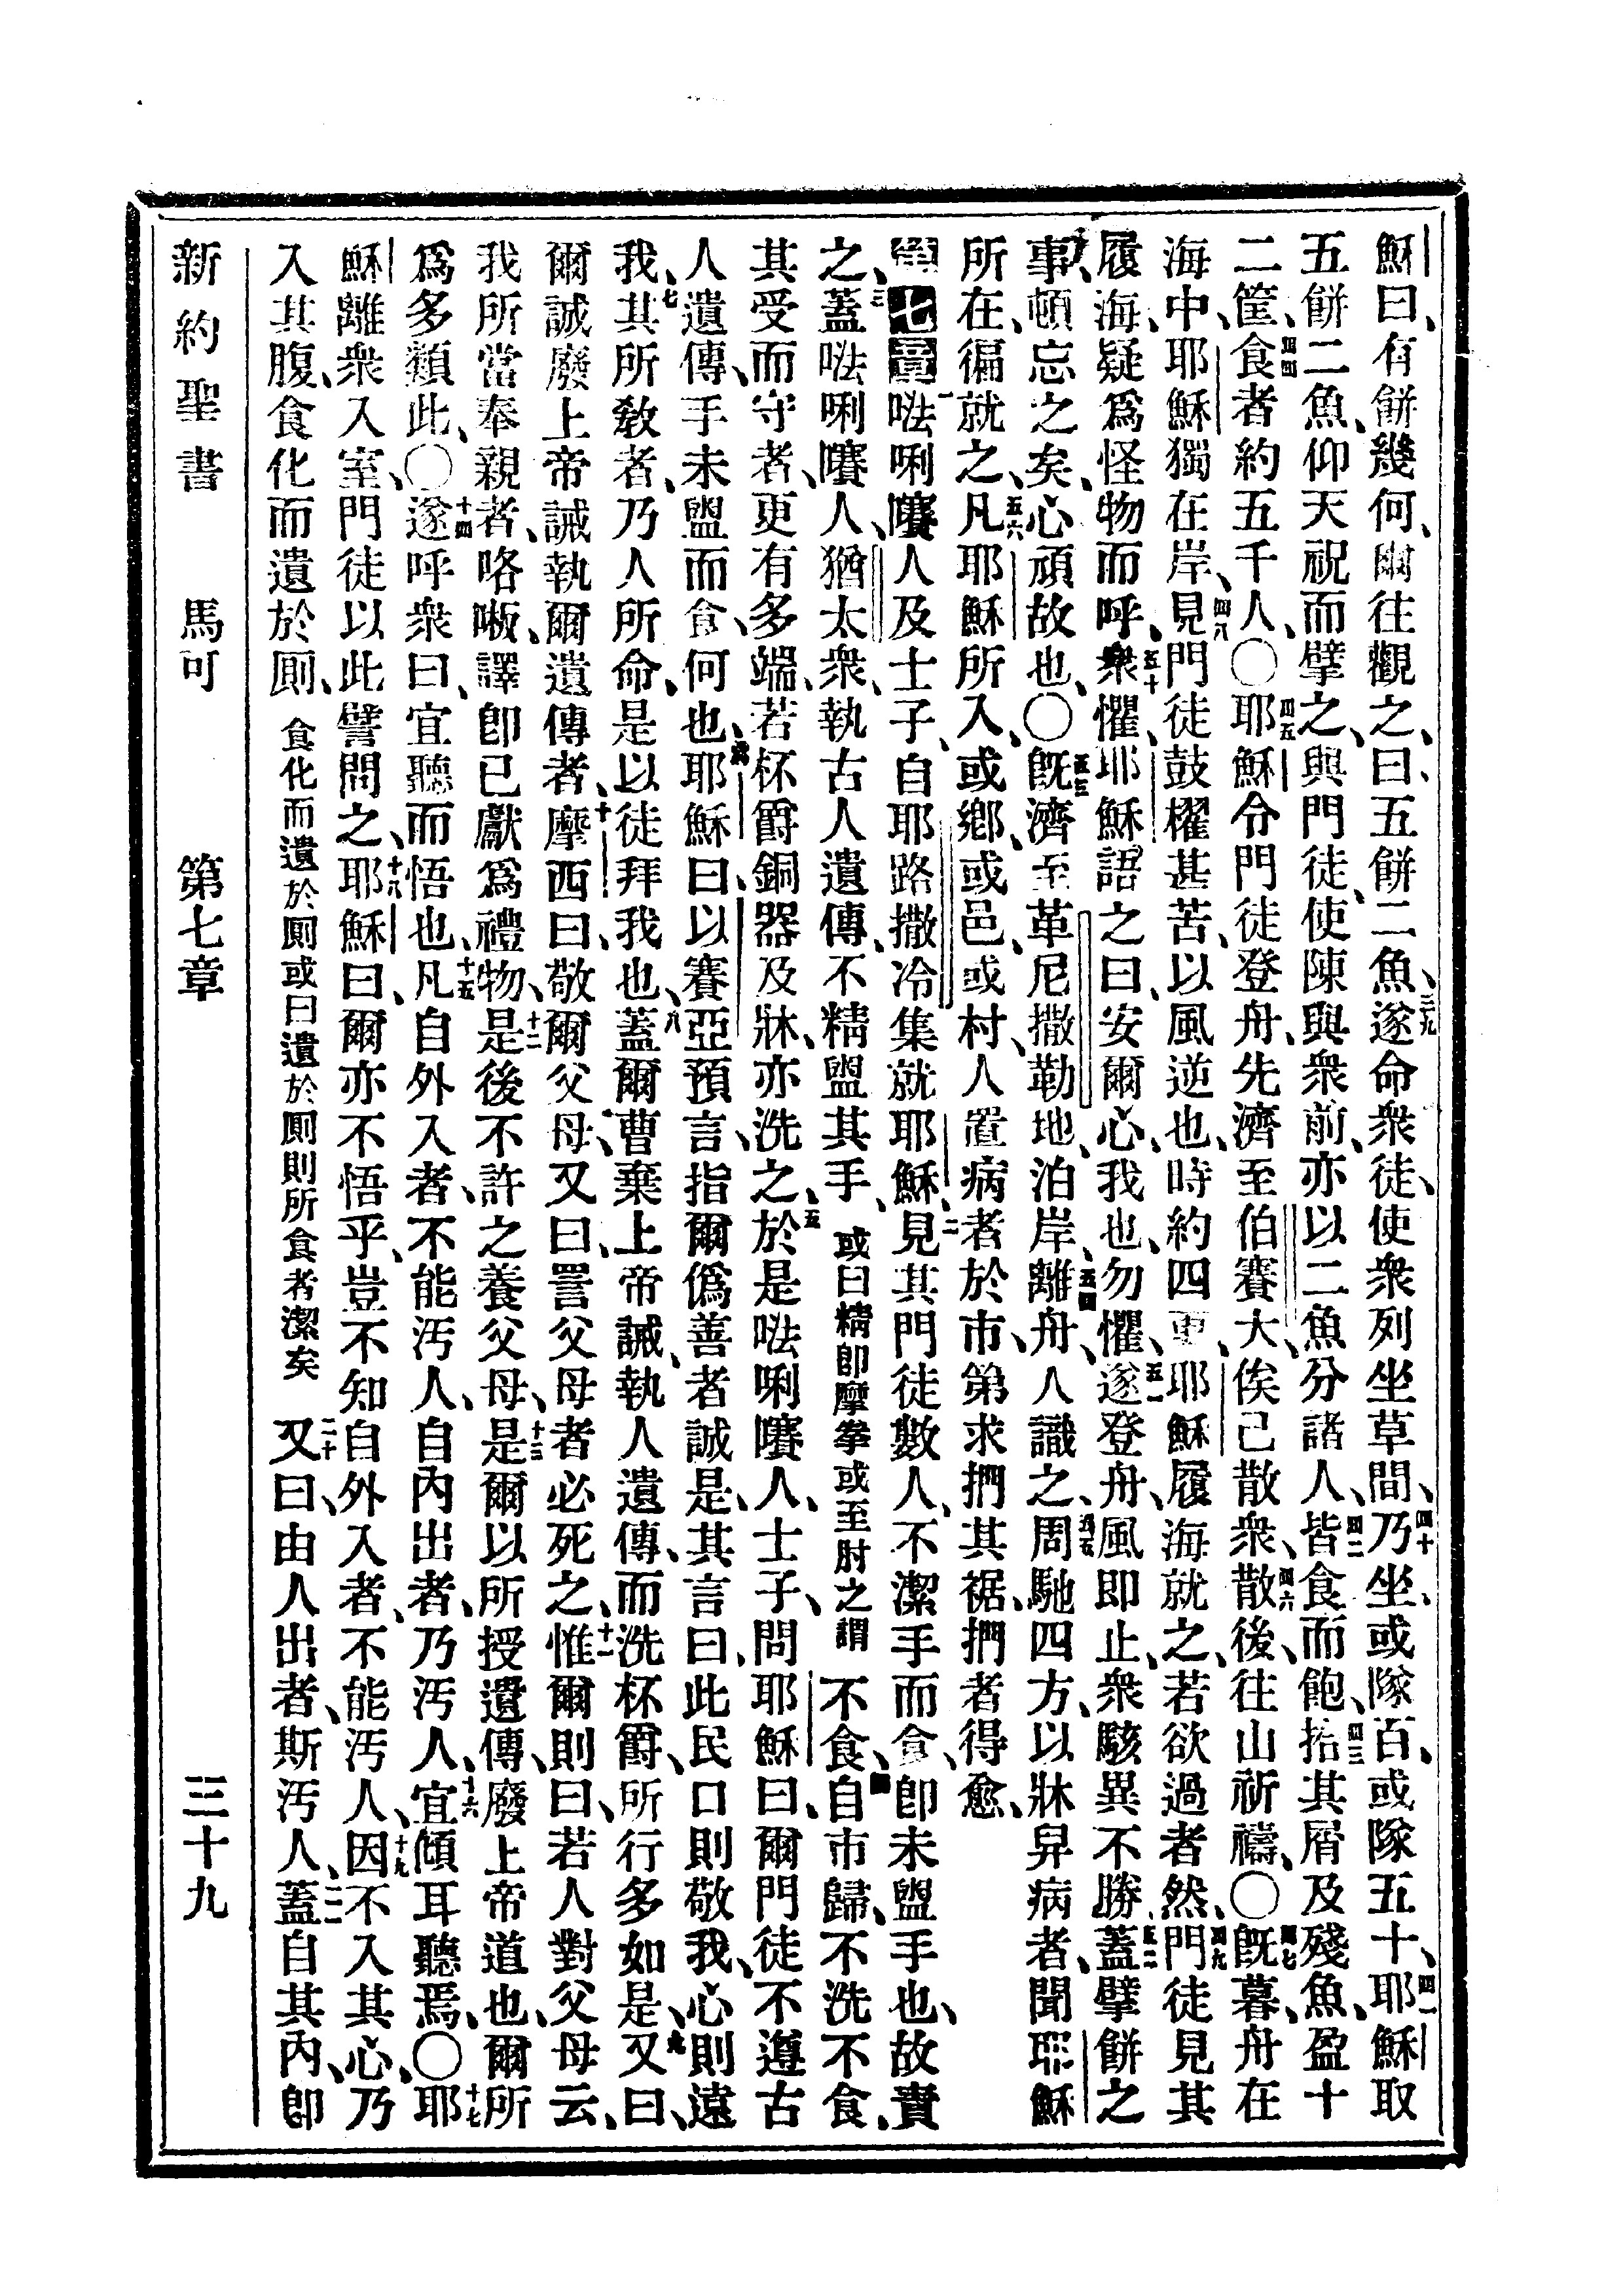 穌曰、有餅幾何、爾往觀之、曰、五餅二魚、三九遂命衆徒、使衆列坐草間、四十乃坐、或隊百、或隊五十、四一耶穌取
五餅二魚、仰天祝而擘之、與門徒、使陳與衆前、亦以二魚分諸人、四二皆食而飽、四三拾其屑及殘魚、盈十
二筐、四四食者約五千人、〇四五耶穌令門徒登舟、先濟至伯賽大、俟己散衆、四六散後、往山祈禱、〇四七旣暮、舟在
海中、耶穌獨在岸、四八見門徒鼓櫂甚苦、以風逆也、時約四更、耶穌履海就之、若欲過者然、四九門徒見其
履海、疑爲怪物而呼、五十衆懼、耶穌語之曰、安爾心、我也、勿懼、五一遂登舟、風即止、衆駭異不勝、五二蓋擘餅之
事、頓忘之矣、心頑故也、〇五三旣濟至革尼撒勒地、泊岸、五四離舟、人識之、五五周馳四方、以牀舁病者、聞耶穌
所在、徧就之、五六凡耶穌所入、或鄉、或邑、或村、人置病者於市、第求捫其裾、捫者得愈、
第七章一㕸唎㘔人及士子、自耶路撒冷集就耶穌、二見其門徒數人、不潔手而食、卽未盥手也、故責
之、三蓋㕸唎㘔人、猶太衆、執古人遺傳、不精盥其手、或曰精卽摩拳或至肘之謂不食、四自市歸、不洗不食、
其受而守者、更有多端、若杯爵銅器及牀、亦洗之、五於是㕸唎㘔人、士子、問耶穌曰、爾門徒不遵古
人遺傳、手未盥而食、何也、六耶穌曰、以賽亞預言、指爾僞善者誠是、其言曰、此民口則敬我、心則遠
我、七其所敎者、乃人所命、是以徒拜我也、八蓋爾曹棄上帝誡、執人遺傳、而洗杯爵、所行多如是、九又曰、
爾誠廢上帝誡、執爾遺傳者、十摩西曰、敬爾父母、又曰、詈父母者必死之、十一惟爾則曰、若人對父母云、
我所當奉親者、咯㘔、譯卽已獻爲禮物、十二是後不許之養父母、十三是爾以所授遺傳、廢上帝道也、爾所
爲多類此、〇十四遂呼衆曰、宜聽而悟也、十五凡自外入者、不能汚人、自內出者、乃汚人、十六宜傾耳聽焉、〇十七耶
穌離衆入室、門徒以此譬問之、十八耶穌曰、爾亦不悟乎、豈不知自外入者、不能汚人、十九因不入其心、乃
入其腹、食化而遺於厠、食化而遺於厠或曰遺於厠則所食者潔矣二十又曰、由人出者、斯汚人、二一蓋自其內、卽
新約聖書　馬可　第七章　三十九